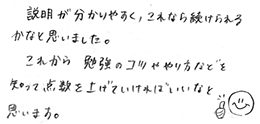 説明が分かりやすく、これなら続けられる
かなと思いました。
これから 勉強のコツややり方などを
知って、点数を上げていければいいなと
思います。